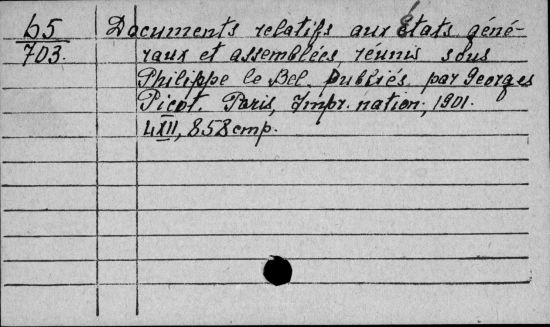 65 Documents relatifs aux États géné-
703. raux et assemblées, réunis sous
Philippe le Bel. Publiés par Georges
Picot. Paris, Impr. nation., 1901.
4° LXII, 858 стр.